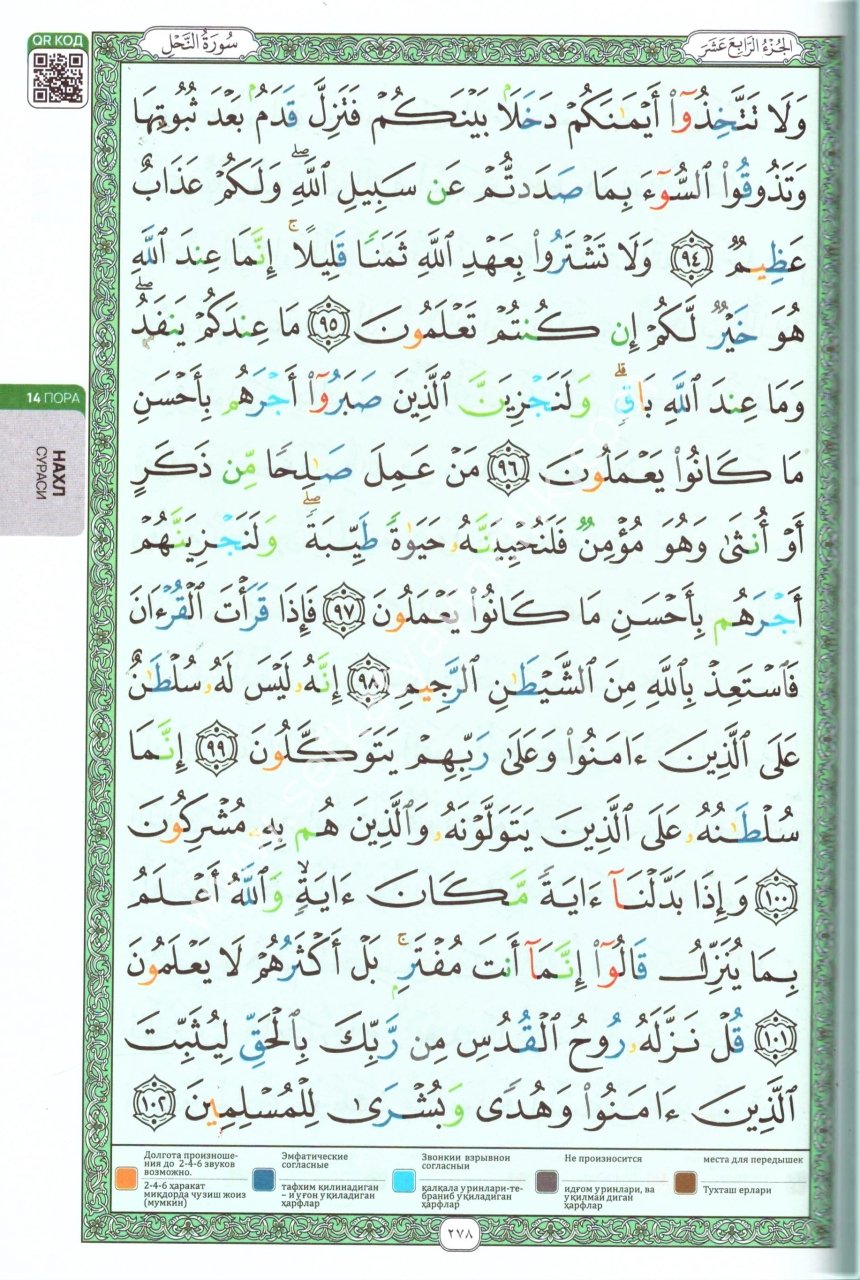 QR КОД
سُورَةُ النَّحْلِ
الجُزْءُ الرَّابِعَ عَشَرَ
وَلَا تَتَّخِذُوٓا۟ أَيْمَـٰنَكُمْ دَخَلًۢا بَيْنَكُمْ فَتَزِلَّ قَدَمٌۢ بَعْدَ ثُبُوتِهَا
وَتَذُوقُوا۟ ٱلسُّوٓءَ بِمَا صَدَدتُّمْ عَن سَبِيلِ ٱللَّهِ ۖ وَلَكُمْ عَذَابٌ
عَظِيمٌ ﴿٩٤﴾ وَلَا تَشْتَرُوا۟ بِعَهْدِ ٱللَّهِ ثَمَنًا قَلِيلًا ۚ إِنَّمَا عِندَ ٱللَّهِ
هُوَ خَيْرٌ لَّكُمْ إِن كُنتُمْ تَعْلَمُونَ ﴿٩٥﴾ مَا عِندَكُمْ يَنفَدُ ۖ
وَمَا عِندَ ٱللَّهِ بَاقٍ ۗ وَلَنَجْزِيَنَّ ٱلَّذِينَ صَبَرُوٓا۟ أَجْرَهُم بِأَحْسَنِ
مَا كَانُوا۟ يَعْمَلُونَ ﴿٩٦﴾ مَنْ عَمِلَ صَـٰلِحًا مِّن ذَكَرٍ
أَوْ أُنثَىٰ وَهُوَ مُؤْمِنٌ فَلَنُحْيِيَنَّهُۥ حَيَوٰةً طَيِّبَةً ۖ وَلَنَجْزِيَنَّهُمْ
أَجْرَهُم بِأَحْسَنِ مَا كَانُوا۟ يَعْمَلُونَ ﴿٩٧﴾ فَإِذَا قَرَأْتَ ٱلْقُرْءَانَ
فَٱسْتَعِذْ بِٱللَّهِ مِنَ ٱلشَّيْطَـٰنِ ٱلرَّجِيمِ ﴿٩٨﴾ إِنَّهُۥ لَيْسَ لَهُۥ سُلْطَـٰنٌ
عَلَى ٱلَّذِينَ ءَامَنُوا۟ وَعَلَىٰ رَبِّهِمْ يَتَوَكَّلُونَ ﴿٩٩﴾ إِنَّمَا
سُلْطَـٰنُهُۥ عَلَى ٱلَّذِينَ يَتَوَلَّوْنَهُۥ وَٱلَّذِينَ هُم بِهِۦ مُشْرِكُونَ
﴿١٠٠﴾ وَإِذَا بَدَّلْنَآ ءَايَةً مَّكَانَ ءَايَةٍ ۙ وَٱللَّهُ أَعْلَمُ
بِمَا يُنَزِّلُ قَالُوٓا۟ إِنَّمَآ أَنتَ مُفْتَرٍۭ ۚ بَلْ أَكْثَرُهُمْ لَا يَعْلَمُونَ
﴿١٠١﴾ قُلْ نَزَّلَهُۥ رُوحُ ٱلْقُدُسِ مِن رَّبِّكَ بِٱلْحَقِّ لِيُثَبِّتَ
ٱلَّذِينَ ءَامَنُوا۟ وَهُدًى وَبُشْرَىٰ لِلْمُسْلِمِينَ ﴿١٠٢﴾
14 ПОРА
НАХЛ
СУРАСИ
Долгота произноше-
ния до 2-4-6 звуков
возможно.
2-4-6 ҳаракат
миқдорда чузиш жоиз
(мумкин)
Эмфатические
согласные
тафхим қилинадиган
– йуғон уқиладиган
ҳарфлар
Звонкии взрывной
согласныи
қалқала уринлари-те-
браниб уқиладиган
ҳарфлар
Не произносится
идғом уринлари, ва
уқилмай диган
ҳарфлар
места для передышек
Тухташ ерлари
٢٧٨